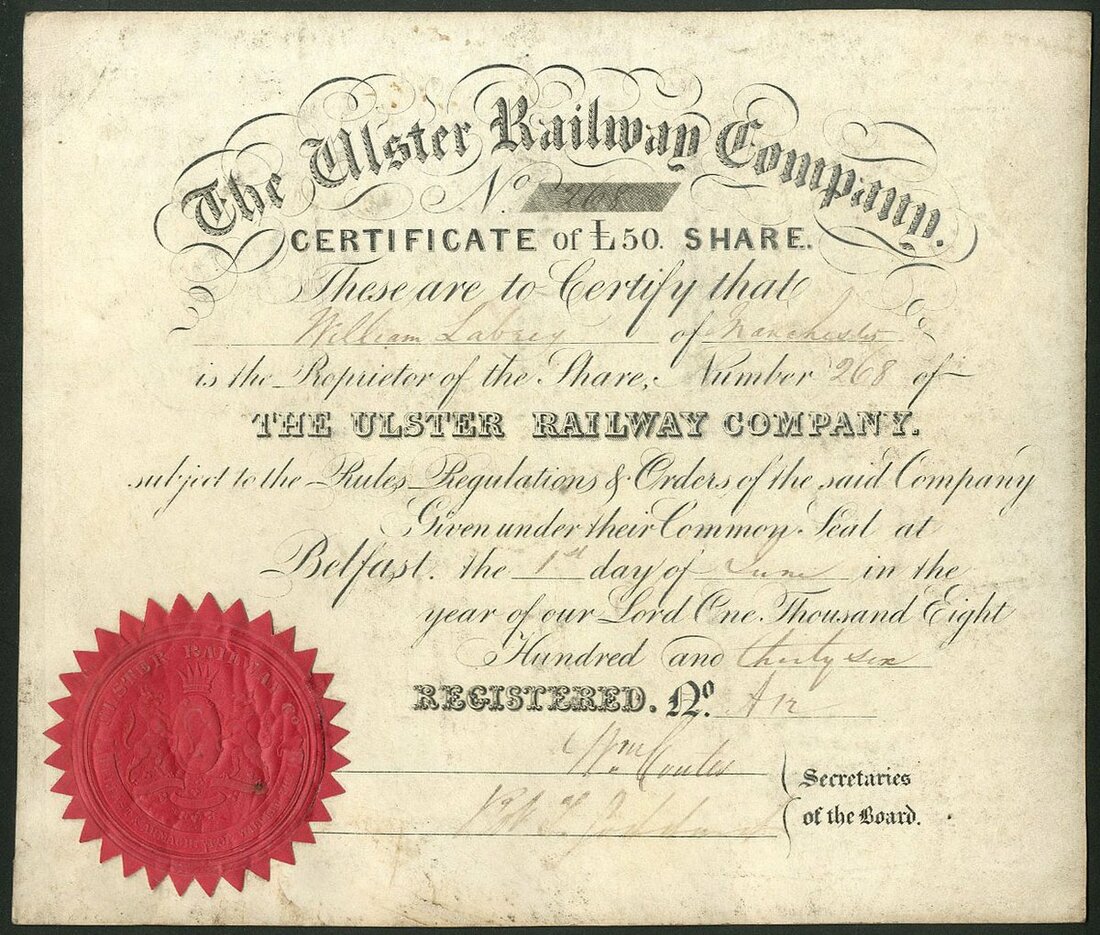 The Ulster Railway Company.
No. 268
CERTIFICATE of £50. SHARE.
These are to Certify that
William Labrey of Manchester
is the Proprietor of the Share, Number 268 of
THE ULSTER RAILWAY COMPANY.
subject to the Rules Regulations & Orders of the said Company
Given under their Common Seal at
Belfast. the 1st day of June in the
year of our Lord One Thousand Eight
Hundred and Thirty six
REGISTERED. No.
Wm. Coates
Secretaries
of the Board.
ULSTER RAILWAY